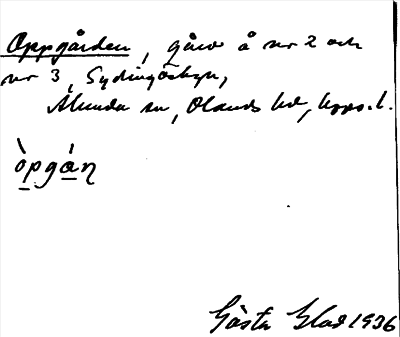 Oppgården, gård å nr 2 och
nr 3, Sydingeby,
Alunda sn, Olands hd, Upps. l.
òpgán
Gösta Blad 1936